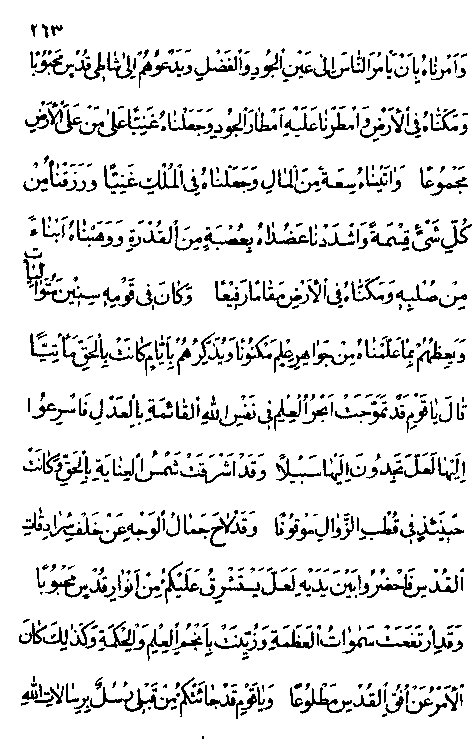 ٢٦٣
وَ اَمرناه بِاَن يَأمُرَ النّاسَ اِلى عَينِ الجودِ وَ الفَضلِ وَ يَدعوهُم اِلى شاطِئ قُدسٍ مَحبوبًا
وَ مَكَنّاهُ فِى الاَرضِ وَ اَمطَرنا عَلَيهِ اَمطارَ الجودِ وَ جَعَلناهُ غَنِيًّا عَلى مَن عَلَى الاَرضِ
مَجموعًا وَ اتَيناهُ سِعَةً مِنَ المالِ وَ جَعَلناهُ فِى المُلكِ غَنِيًّا وَ رَزَقناهُ مِن
كُلِّ شَئٍ قِسمَةً وَ اشدَدنا عَضُدَاهُ بِعُصبَةٍ مِنَ القُدرَةِ وَ وَهَبناهُ اَبناءً
مِن صُلبِهِ وَ مَكَنّاهُ فِى الاَرضِ مَقامًا رَفيعًا وَ كانَ فى قَومِهِ سِنينَ مُتَوالِيات
وَ يَعِظُهُم بِما عَلَّمناهُ مِن جَواهِرِ عِلمٍ مَكنونًا وَ يُذَكِّرُهُم بِاَيّامٍ كانَت بِالحَقِّ مَأتِيًّا
قالَ يا قَومِ قَد تَمَوَّجَت اَبحُرُ العِلمِ فى نَفسِ اللهِ القائِمَةِ بِالعَدلِ فَاسرِعوا
اِلَيها لَعَلَّ تَجِدونَ اِلَيها سَبيلًا وَ قَد اَشرَقَت شَمسُ العِنايَةِ بِالحَقِّ وَ كانَت
حينَئِذٍ فى قُطبِ الزَّوالِ مَوقوفًا وَ قَد لاحَ جَمالُ الوَجهِ عَن خَلفِ سُرادِقاتِ
القُدسِ فَاحضُروا بَينَ يَدَيهِ لَعَلَّ يَستَشرِقُ عَلَيكُم مِن اَنوارِ قُدسٍ مَحبوبًا
وَ قَد اِرتَفَعَت سَمواتُ العَظَمَةِ وَ زُيِّنَت بِاَنجُمِ العِلمِ وَ الحِكمَةِ وَ كَذلِكَ كانَ
الاَمرُ عَن اُفُقِ القُدسِ مَطلوعًا وَ يا قَومِ قَد جائَتكُم مِن قَبلى رُسُلٌ بِرِسالاتِ اللهِ